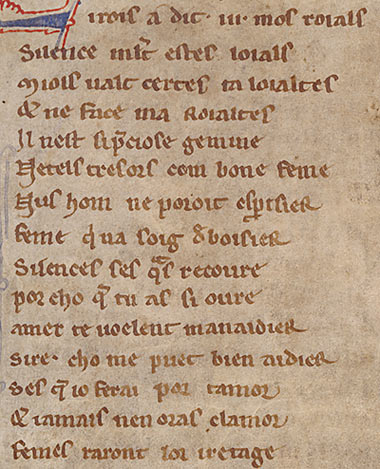 Li rois a dit · iii · mos roials
Silence ml̃t estes loials
Miols ualt certes ta loialtes
& ne face ma Roialtes
Il nest sip̃ciose gemme
Netels tresors com bone feme
Nus hom ne poroit esp̃tisier
feme q̍ na soig đ boisier
Silences ses q̃s recoure
por cho q̃ tu as si oure
amer te uoelent manaidier
sire · cho me puet bien aidier
Ses q̃ io ferai por tamor
& iamais nen oras clamor
femes raront lor iretage